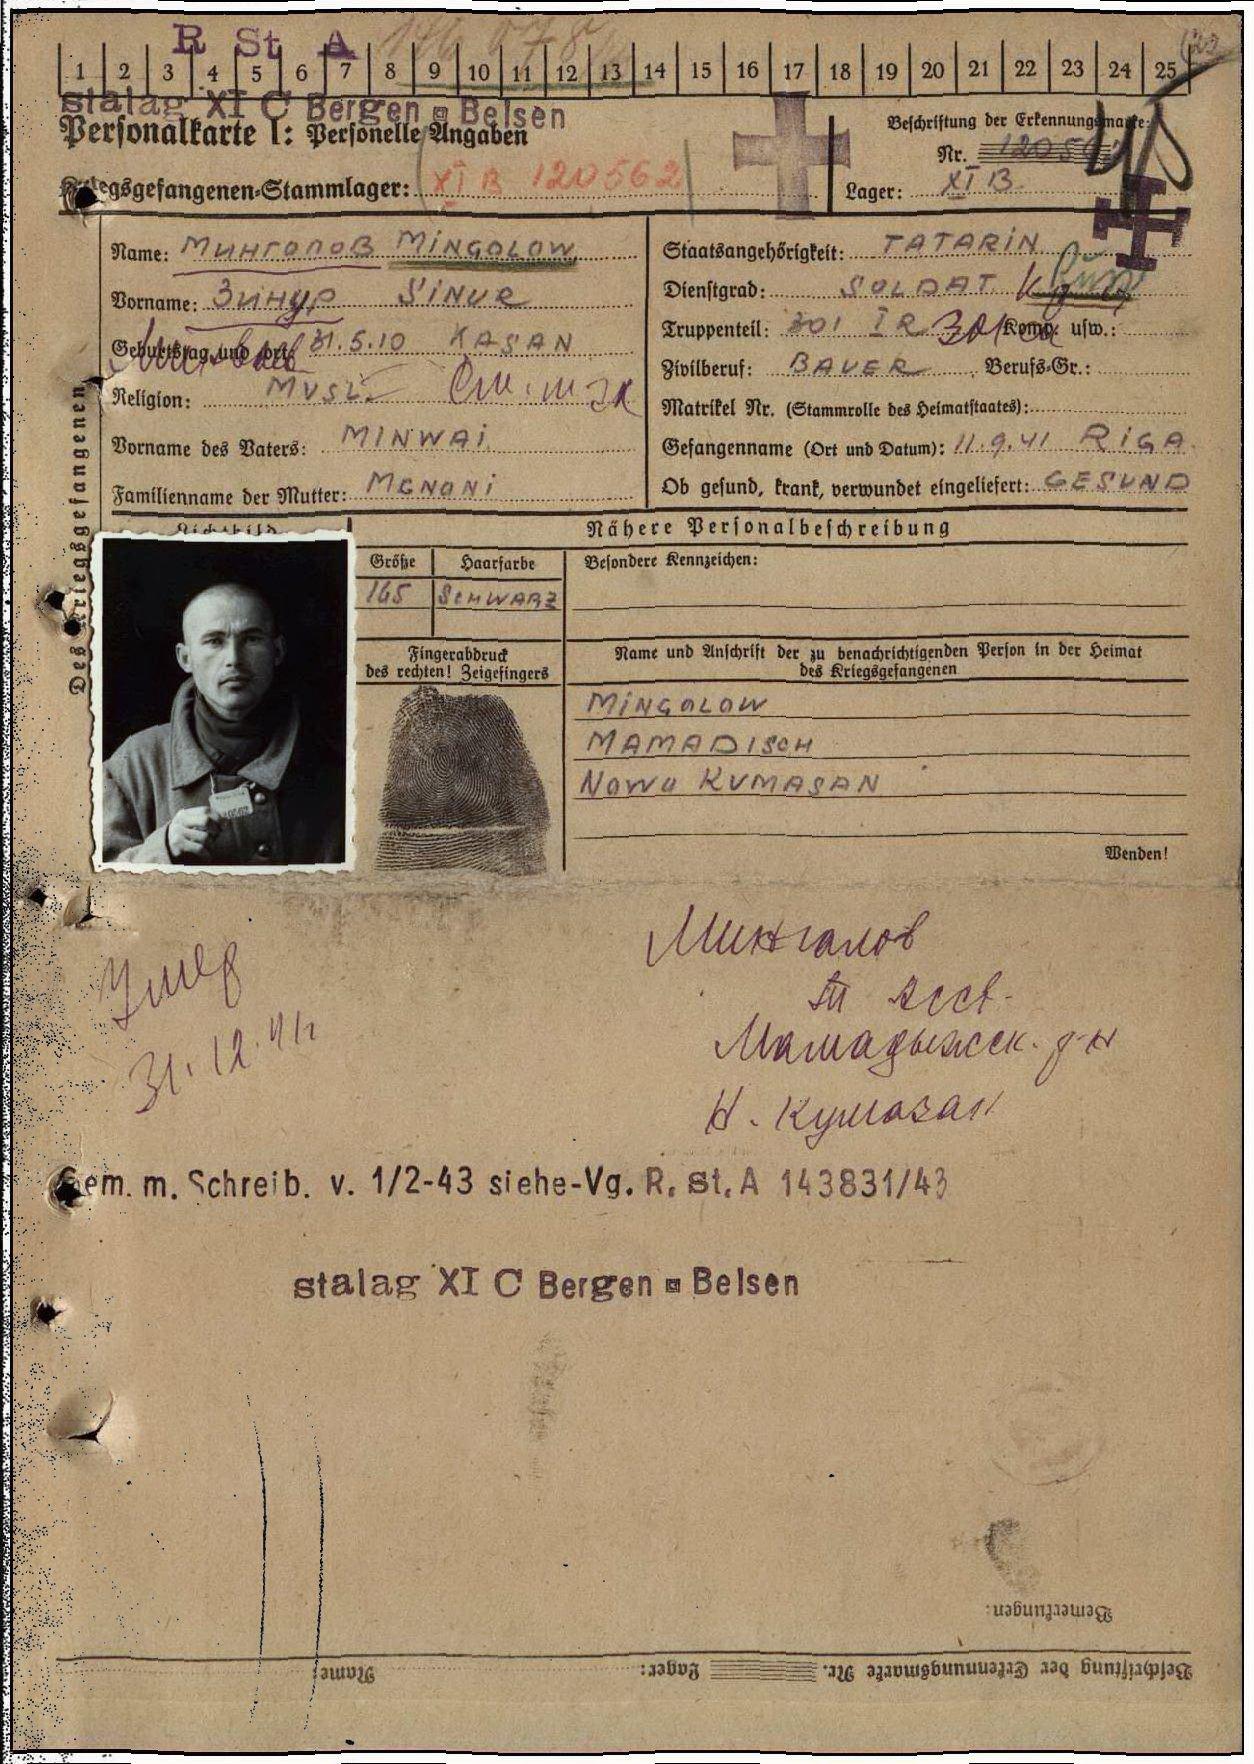 R St A
1 2 3 4 5 6 7 8 9 10 11 12 13 14 15 16 17 18 19 20 21 22 23 24 25
stalag XI C Bergen Belsen
Personalkarte I: Personelle Angaben
Beschriftung der Erkennungsmarke:
Nr. 12056
Kriegsgefangenen-Stammlager: XI B 120562
Lager: XI B
Des Kriegsgefangenen
Name: Минголов MINGOLOW
Vorname: Зинур SINUR
Geburtstag und -ort: 31.5.10 KASAN
Religion: MUSL.
Vorname des Vaters: MINWAI
Familienname der Mutter: MGNONI
Staatsangehörigkeit: TATARIN
Dienstgrad: SOLDAT
Truppenteil: 301 IR 301 Komp. usw.:
Zivilberuf: BAUER Berufs-Gr.:
Matrikel Nr. (Stammrolle des Heimatstaates):
Gefangenname (Ort und Datum): 11.9.41 RIGA
Ob gesund, krank, verwundet eingeliefert: GESUND
Lichtbild
Nähere Personalbeschreibung
Größe Haarfarbe
165 SCHWARZ
Besondere Kennzeichen:
Fingerabdruck
des rechten! Zeigefingers
Name und Anschrift der zu benachrichtigenden Person in der Heimat
des Kriegsgefangenen
MINGOLOW
MAMADISCH
NOWO KUMASAN
Wenden!
Умер
31.12.41г
Мингалов
Т АССР.
Мамадышск. р-н
Н. Кумазан
Gem. m. Schreib. v. 1/2-43 siehe-Vg. R. St. A 143831/43
stalag XI C Bergen Belsen
Bemerkungen:
Beschriftung der Erkennungsmarke Nr. Lager: Name: